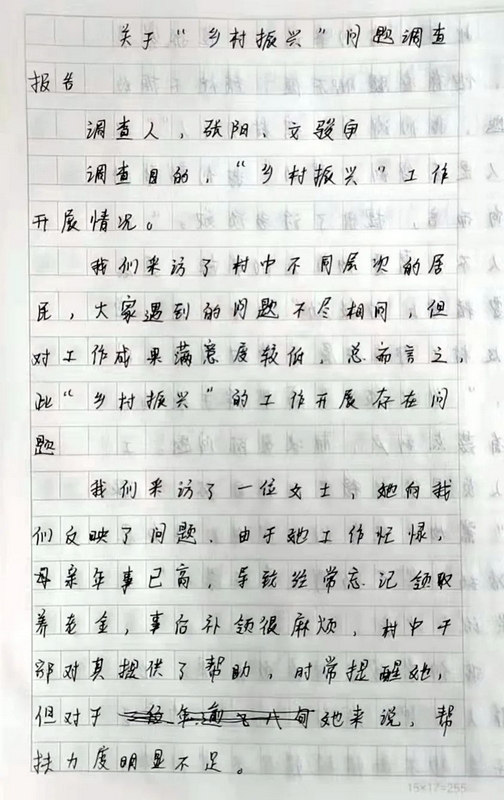 关于“乡村振兴”问题调查
报告
调查人：张阳、文骏宇
调查目的：“乡村振兴”工作
开展情况。
我们采访了村中不同层次的居
民，大家遇到的问题不尽相同，但
对工作成果满意度较低，总而言之，
此“乡村振兴”的工作开展存在问
题
我们采访了一位女士，她向我
们反映了问题．由于她工作忙碌，
母亲年事已高，导致经常忘记领取
养老金，事后补领很麻烦，村中干
部对其提供了帮助，时常提醒她，
但对于她来说，帮
扶力度明显不足。
15×17=255